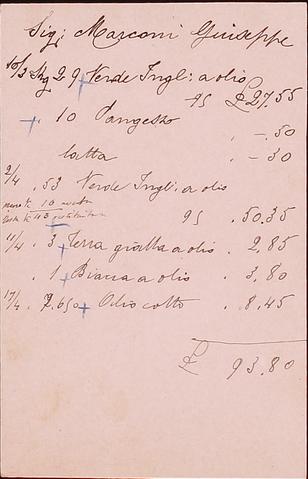 Sig: Marconi Giuseppe
10/3 Kg 29 Verde Ingl: a olio
95 £ 27.55
" 10 Pangesso " -.50
latta " -30
2/4 . 53 Verde Ingl: a olio
meno K 10
K 43 95 . 50.35
11/4 . 3 Terra gialla a olio . 2,85
. 1 Biacca a olio . 3,80
17/4 . 7.650 Olio cotto . 8.45
£ 93.80